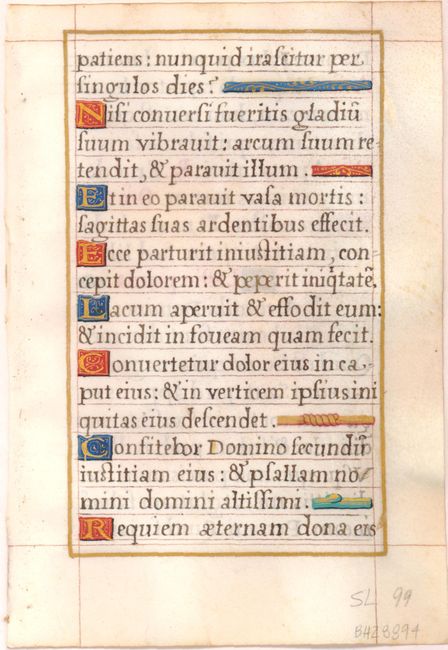 patiens: nunquid irascitur per
singulos dies?
Nisi conversi fueritis gladiū
suum vibrauit: arcum suum re
tendit, & parauit illum.
Et in eo parauit vasa mortis:
sagittas suas ardentibus effecit.
Ecce parturit iniustitiam, con-
cepit dolorem: & peperit iniq̇tatē.
Lacum aperuit & effodit eum:
& incidit in foueam quam fecit.
Conuertetur dolor eius in ca-
put eius: & in verticem ipsius ini
quitas eius descendet.
Confitebor Domino secundū
iustitiam eius: & psallam no
mini domini altissimi.
Requiem æternam dona eis
SL 99
BHZ8894